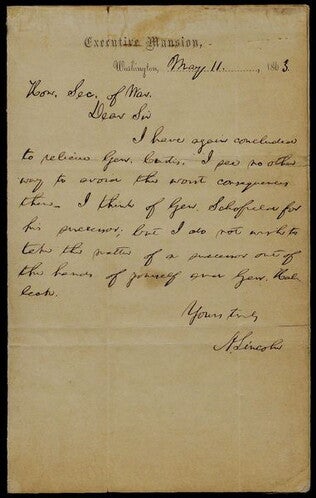 Executive Mansion,
Washington, May 11, 1863.
Hon. Sec. of War.
Dear Sir
I have again concluded
to relieve Gen. Curtis. I see no other
way to avoid the worst consequences
there. I think of Gen. Schofield for
his successor, but I do not wish to
take the matter of a successor out of
the hands of yourself and Gen. Hal-
leck.
Yours truly
A. Lincoln